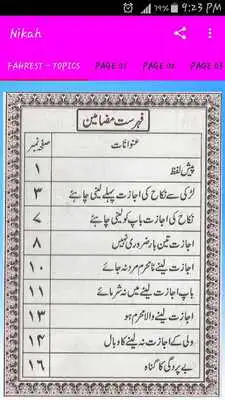 9:23 PM
Nikah
FAHREST - TOPICS PAGE 01 PAGE 02 PAGE 03
فہرست مضامین
عنوانات صفحہ نمبر
پیش لفظ ۱
لڑکی سے نکاح کی اجازت پہلے لینی چاہئے ۳
نکاح کی اجازت باپ کو لینی چاہئے ۷
اجازت تین بار ضروری نہیں ۸
اجازت لینے نامحرم مرد نہ جائے ۱۰
باپ اجازت لینے میں نہ شرمائے ۱۱
اجازت لینے والا محرم ہو ۱۳
ولی کے اجازت نہ لینے کا وبال ۱۴
بے پردگی کا گناہ ۱۶